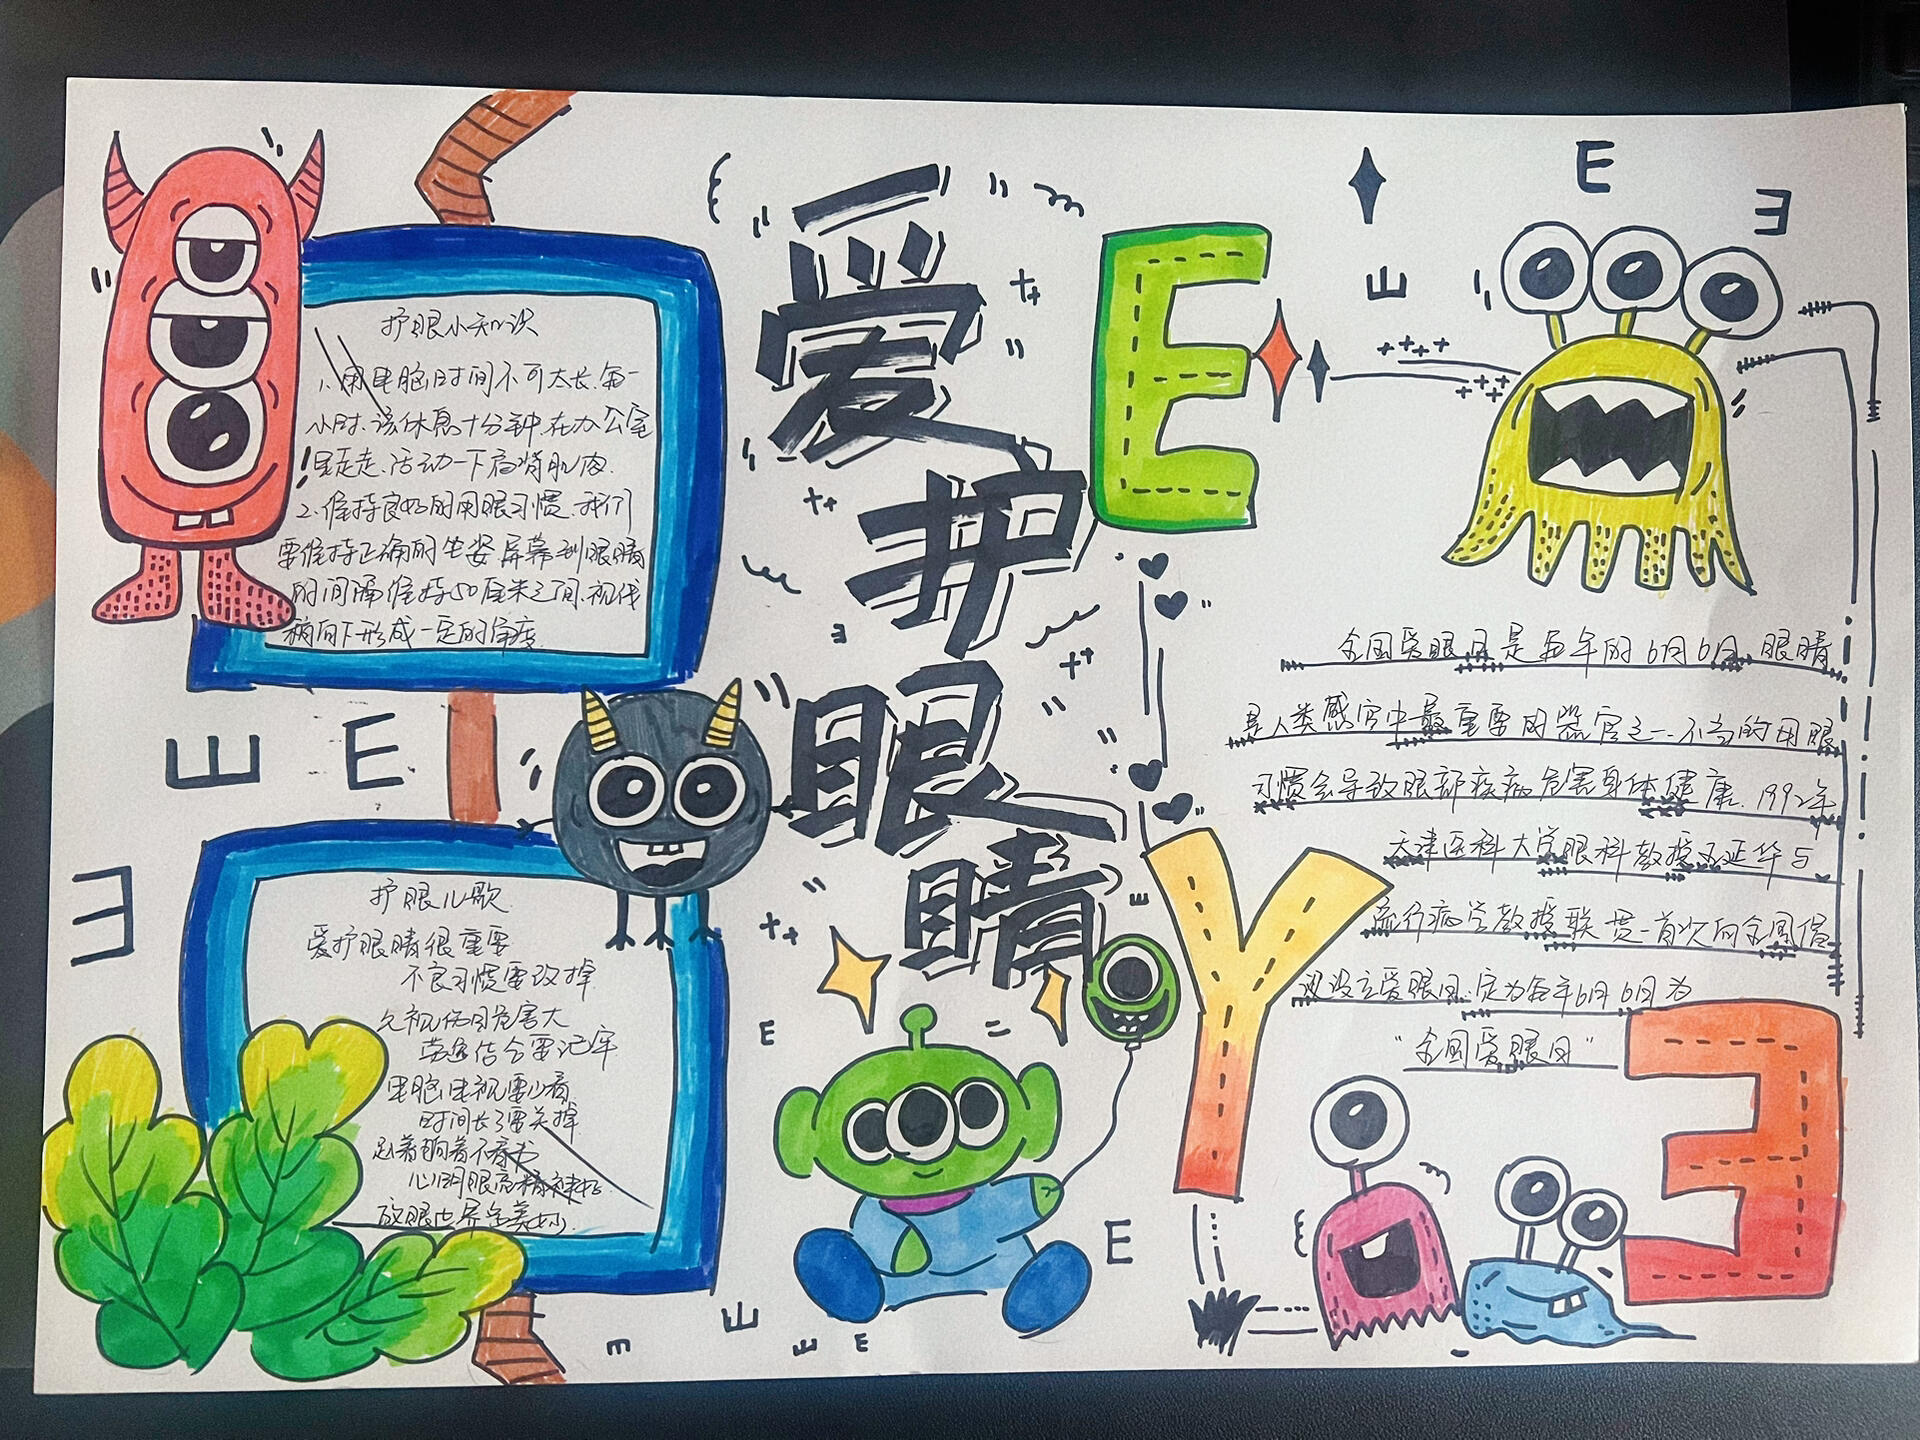 护眼小知识
1、用电脑时间不可太长.每一
小时.该休息十分钟.在办公室
里走走.活动一下肩背肌肉.
2.保持良好的用眼习惯.我们
要保持正确的坐姿.屏幕到眼睛
的间隔保持50厘米之间.视线
稍向下形成一定的角度.
E
E
E
护眼儿歌
爱护眼睛很重要
不良习惯要改掉
久视伤目危害大
劳逸结合要记牢
电脑电视要少看
时间长了要关掉
走着躺着不看书
心明眼亮精神好
放眼世界全美妙.
爱
护
眼
睛
E
Y
E
E
E
E
全国爱眼日是每年的6月6日.眼睛
是人类感官中最重要的器官之一.不当的用眼
习惯会导致眼部疾病危害身体健康.1992年
天津医科大学眼科教授王延华与
流行病学教授联贯.首次向全国倡
议设立爱眼日.定为每年6月6日为
“全国爱眼日”
E
E
E
E
E
E